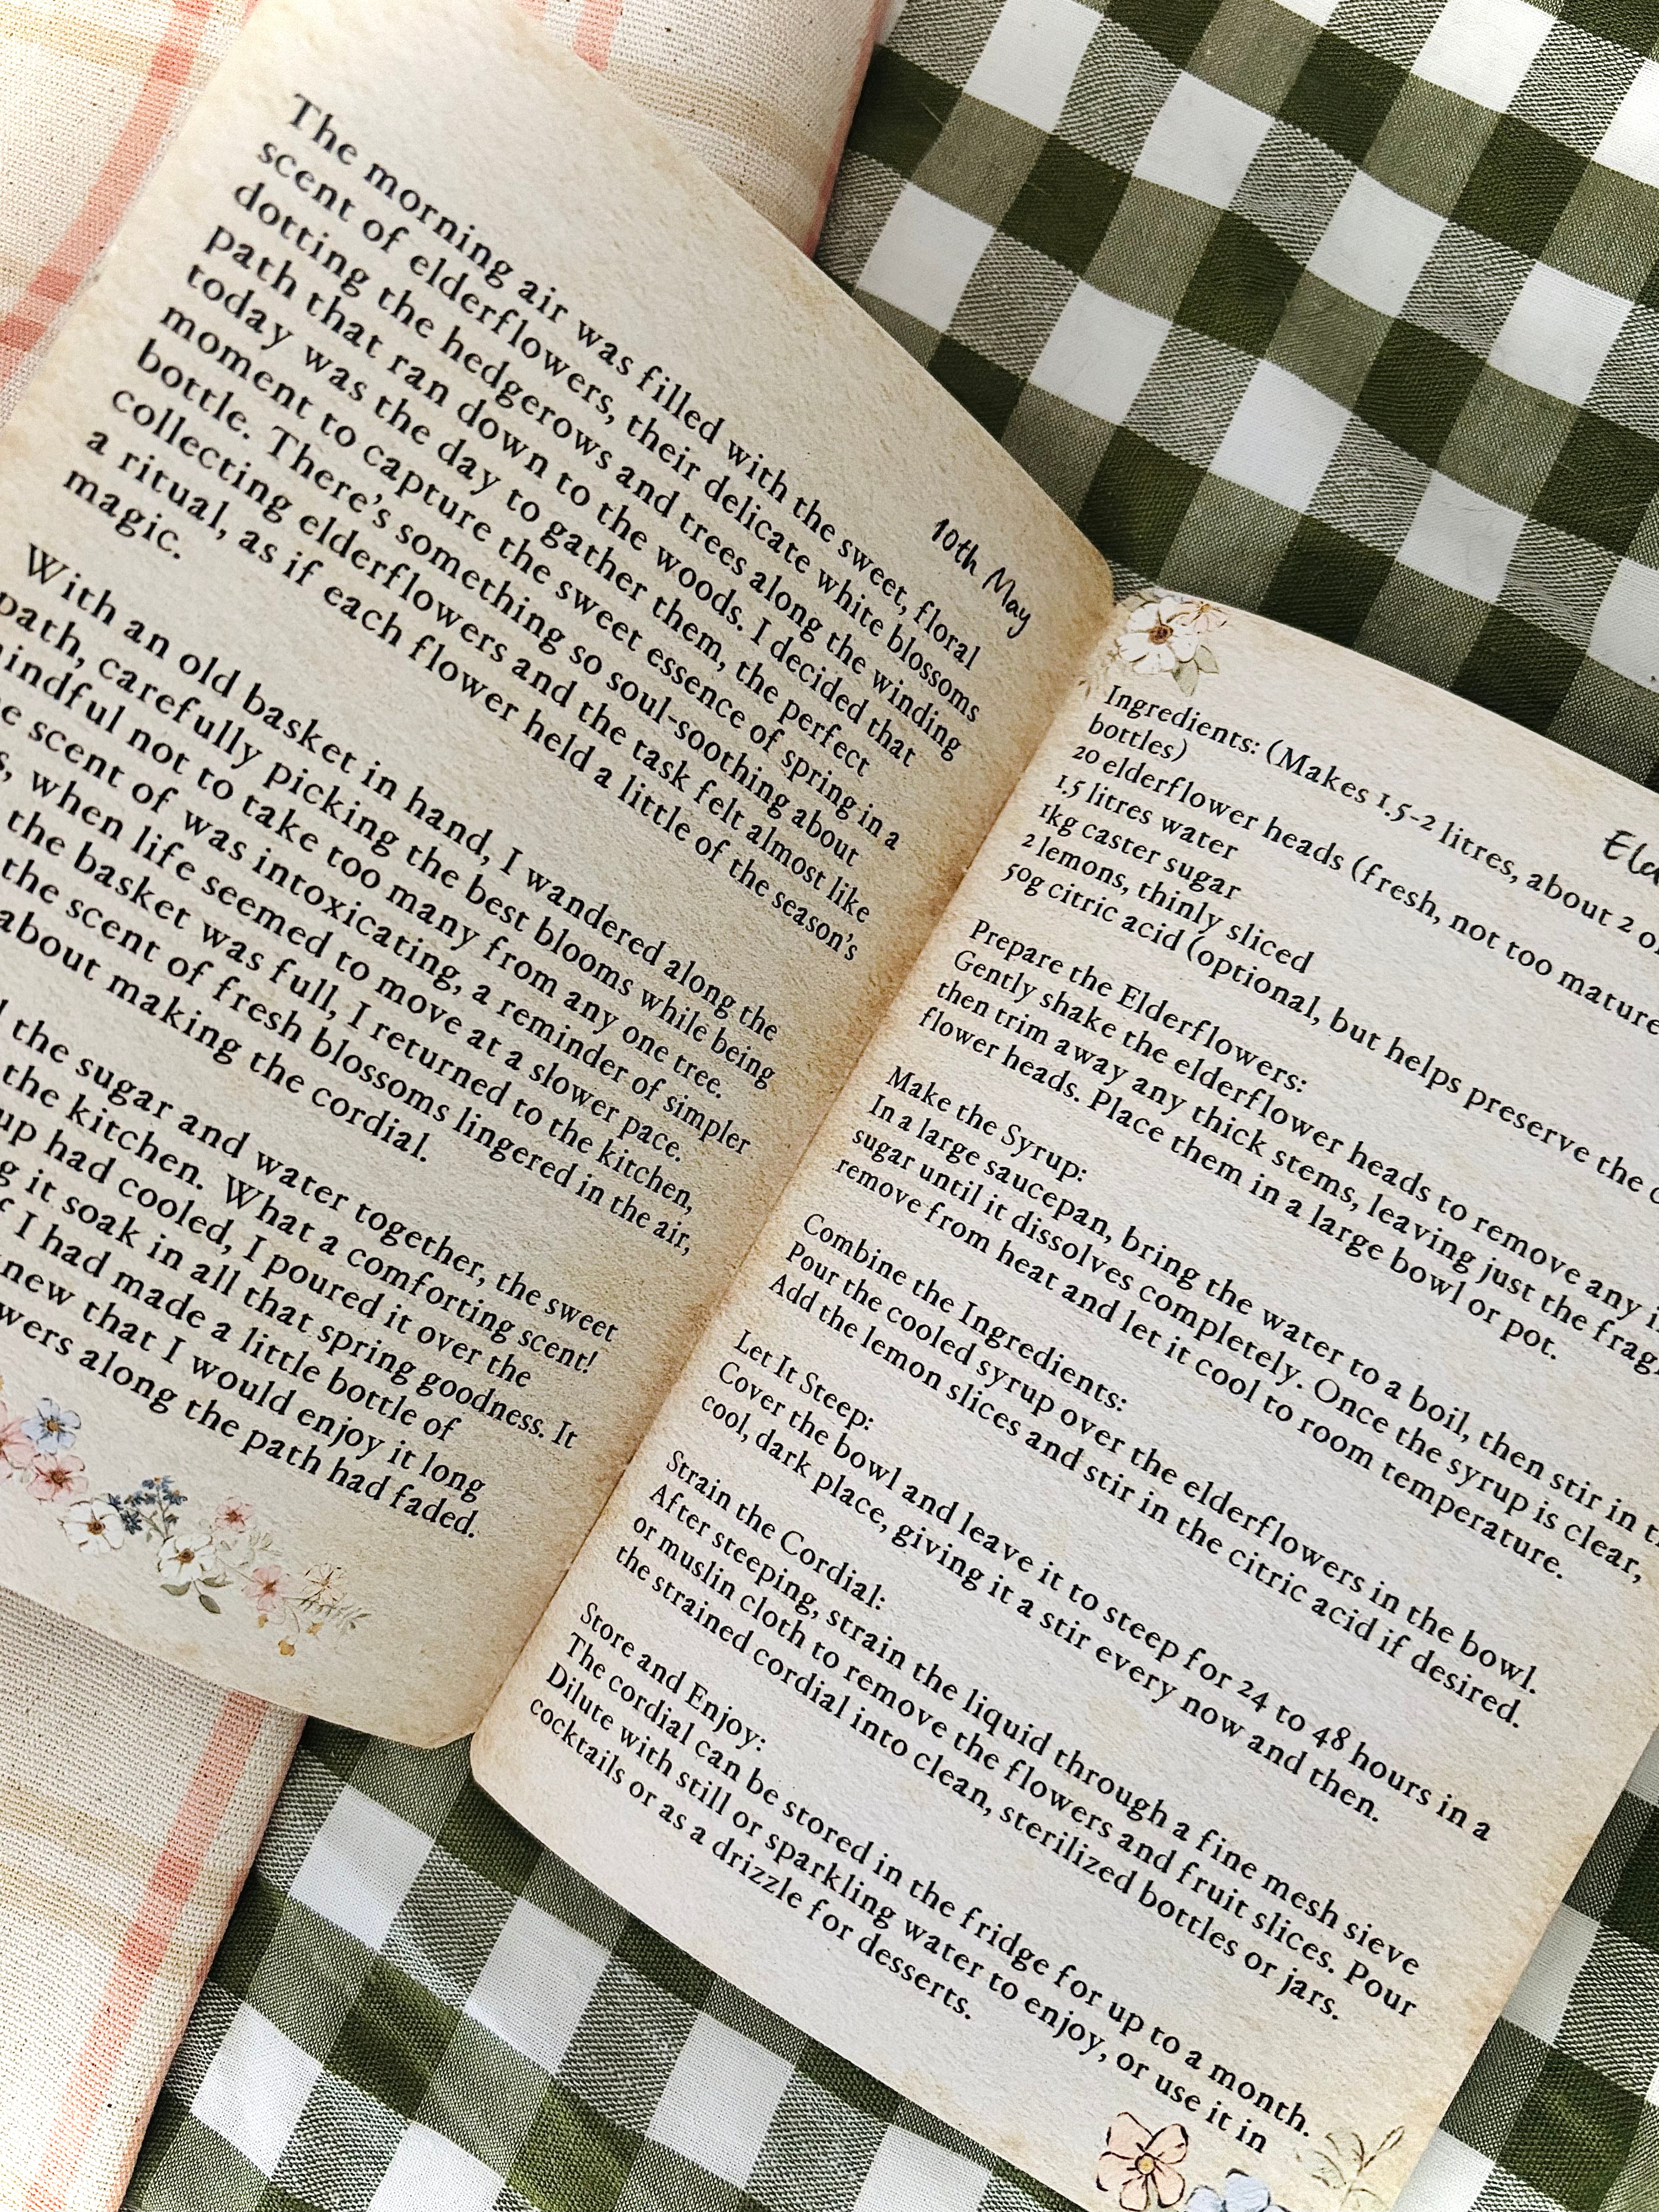 10th May
The morning air was filled with the sweet, floral
scent of elderflowers, their delicate white blossoms
dotting the hedgerows and trees along the winding
path that ran down to the woods. I decided that
today was the day to gather them, the perfect
moment to capture the sweet essence of spring in a
bottle. There's something so soul-soothing about
collecting elderflowers and the task felt almost like
a ritual, as if each flower held a little of the season's
magic.
With an old basket in hand, I wandered along the
path, carefully picking the best blooms while being
mindful not to take too many from any one tree.
scent of was intoxicating, a reminder of simpler
when life seemed to move at a slower pace.
the basket was full, I returned to the kitchen,
the scent of fresh blossoms lingered in the air,
about making the cordial.
the sugar and water together, the sweet
the kitchen. What a comforting scent!
had cooled, I poured it over the
it soak in all that spring goodness. It
I had made a little bottle of
that I would enjoy it long
along the path had faded.
Ingredients: (Makes 1.5-2 litres, about 2
bottles)
20 elderflower heads (fresh, not too mature
1.5 litres water
1kg caster sugar
2 lemons, thinly sliced
50g citric acid (optional, but helps preserve the
Prepare the Elderflowers:
Gently shake the elderflower heads to remove any
then trim away any thick stems, leaving just the
flower heads. Place them in a large bowl or pot.
Make the Syrup:
In a large saucepan, bring the water to a boil, then stir in
sugar until it dissolves completely. Once the syrup is clear,
remove from heat and let it cool to room temperature.
Combine the Ingredients:
Pour the cooled syrup over the elderflowers in the bowl.
Add the lemon slices and stir in the citric acid if desired.
Let It Steep:
Cover the bowl and leave it to steep for 24 to 48 hours in a
cool, dark place, giving it a stir every now and then.
Strain the Cordial:
After steeping, strain the liquid through a fine mesh sieve
or muslin cloth to remove the flowers and fruit slices. Pour
the strained cordial into clean, sterilized bottles or jars.
Store and Enjoy:
The cordial can be stored in the fridge for up to a month.
Dilute with still or sparkling water to enjoy, or use it in
cocktails or as a drizzle for desserts.